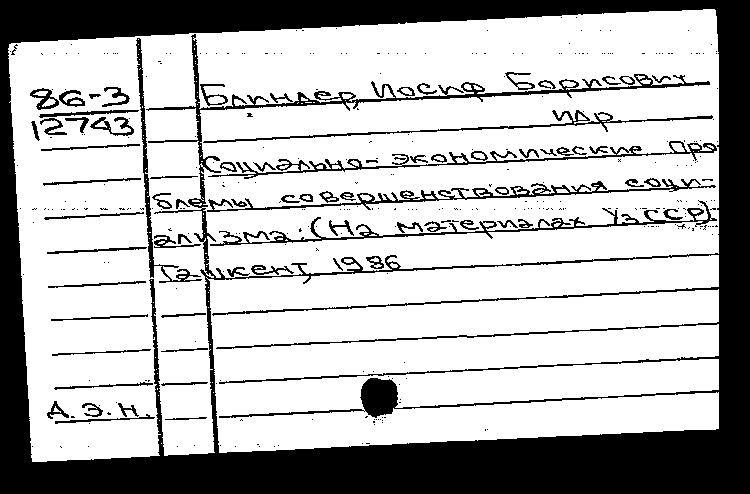 86-3 Блиндер, Иосиф Борисович
12743 и др
Социально-экономические про-
блемы совершенствования соци-
ализма: (На материалах УзССР).
Ташкент, 1986
Д. Э. Н.